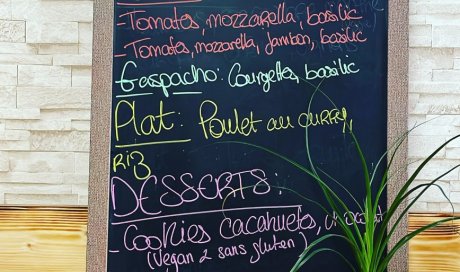 -Tomates, mozzarella, basilic
-Tomates, mozzarella, jambon, basilic
Gaspacho: Courgettes, basilic
Plat: Poulet au curry,
riz
DESSERTS:
-Cookies cacahuetes, chocolat
(vegan & sans gluten)